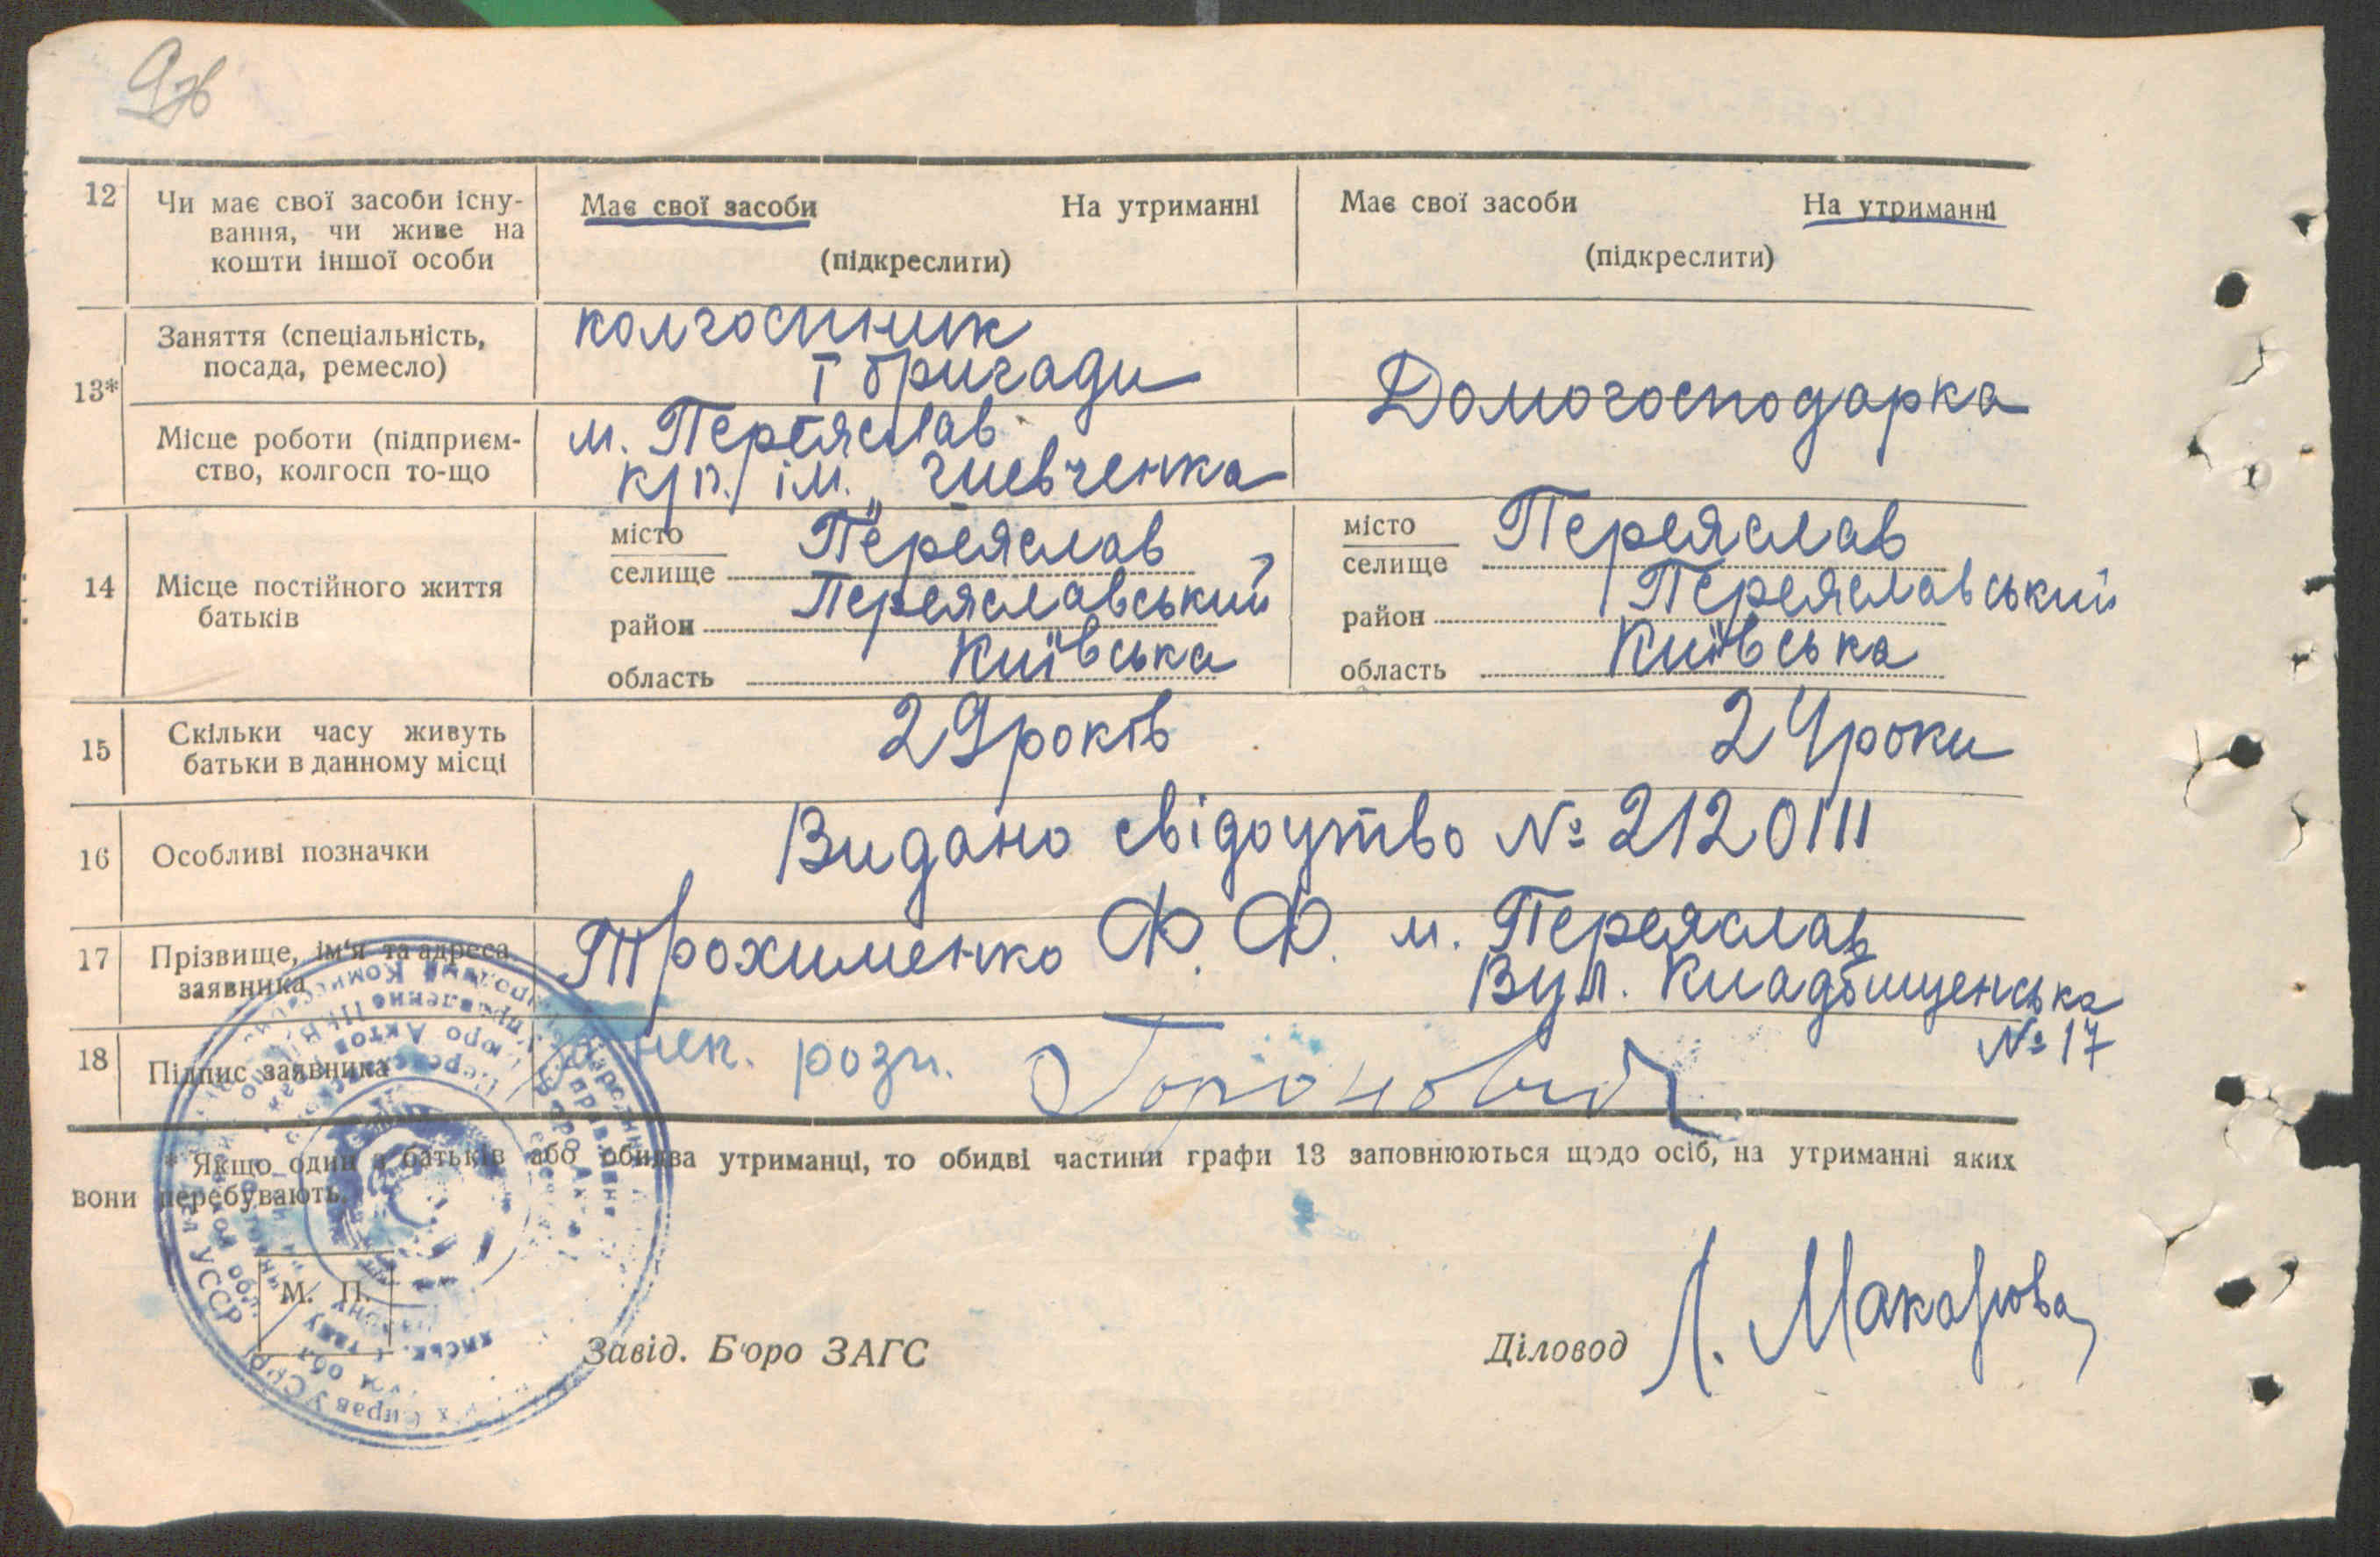 12 Чи має свої засоби існу-
вання, чи живе на
кошти іншої особи
Має свої засоби На утриманні
(підкреслити)
Має свої засоби На утриманні
(підкреслити)
13*
Заняття (спеціальність,
посада, ремесло)
колгоспник
I бригади
Домогосподарка
Місце роботи (підприєм-
ство, колгосп то-що
м. Переяслав
к/г. ім. „Шевченка
14 Місце постійного життя
батьків
місто
селище Переяслав
район Переяславський
область Київська
місто
селище Переяслав
район Переяславський
область Київська
15 Скільки часу живуть
батьки в данному місці
29 років
24 роки
16 Особливі позначки
Видано свідоцтво № 2120111
17 Прізвище, ім'я та адреса
заявника
Трохименко Ф. Ф. м. Переяслав
Вул. Кладбищенська
№ 17
18 Підпис заявника
розп.
* Якщо один з батьків або обидва утриманці, то обидві частини графи 13 заповнюються щодо осіб, на утриманні яких
вони перебувають.
М. П.
Завід. Б'юро ЗАГС
Діловод Л. Макарова